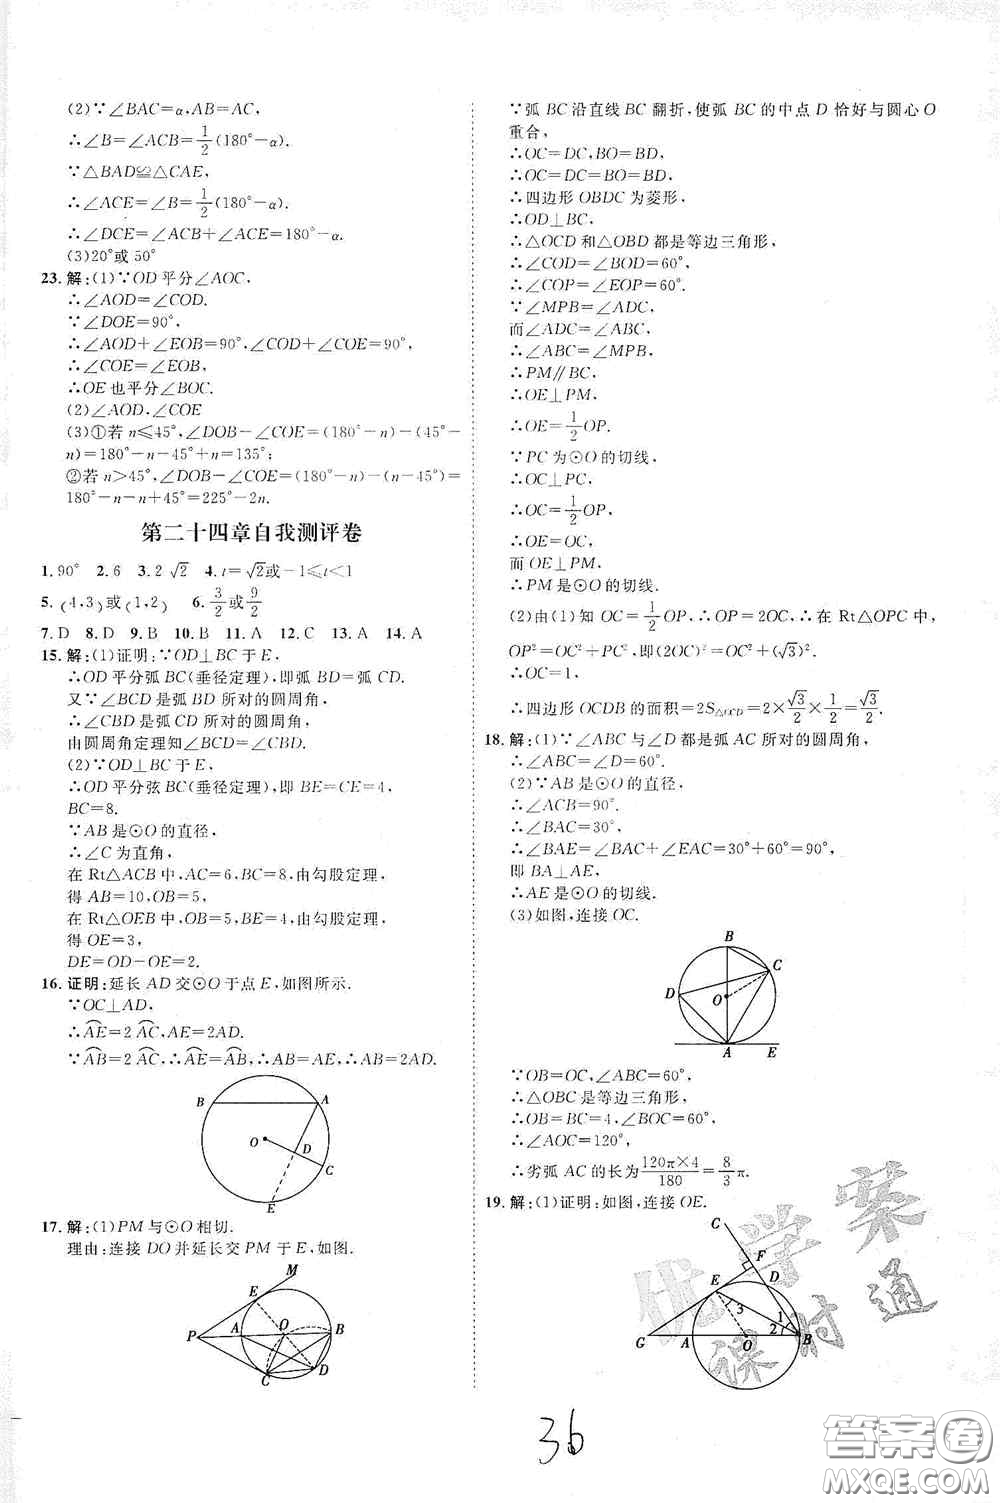 (2)∵∠BAC=α,AB=AC,
∴∠B=∠ACB=1/2(180°-α).
∵△BAD≌△CAE,
∴∠ACE=∠B=1/2(180°-α).
∴∠DCE=∠ACB+∠ACE=180°-α.
(3)20°或50°
23.解:(1)∵OD平分∠AOC,
∴∠AOD=∠COD.
∵∠DOE=90°,
∴∠AOD+∠EOB=90°,∠COD+∠COE=90°,
∴∠COE=∠EOB,
∴OE也平分∠BOC.
(2)∠AOD,∠COE
(3)①若n≤45°,∠DOB-∠COE=(180°-n)-(45°-
n)=180°-n-45°+n=135°;
②若n>45°,∠DOB-∠COE=(180°-n)-(n-45°)
=180°-n-n+45°=225°-2n.
第二十四章自我测评卷
1.90° 2.6 3.2√2 4.t=√2或-1≤t<1
5.(4,3)或(1,2) 6.3/2或9/2
7.D 8.D 9.B 10.B 11.A 12.C 13.A 14.A
15.解:(1)证明:∵OD⊥BC于E,
∴OD平分弧BC(垂径定理),即弧BD=弧CD.
又∵∠BCD是弧BD所对的圆周角,
∴∠CBD是弧CD所对的圆周角,
由圆周角定理知∠BCD=∠CBD.
(2)∵OD⊥BC于E,
∴OD平分弦BC(垂径定理),即BE=CE=4,
BC=8.
∵AB是⊙O的直径,
∴∠C为直角,
在Rt△ACB中,AC=6,BC=8,由勾股定理,
得AB=10,OB=5,
在Rt△OEB中,OB=5,BE=4,由勾股定理,
得OE=3,
DE=OD-OE=2.
16.证明:延长AD交⊙O于点E,如图所示.
∵OC⊥AD,
∴AE=2AC,AE=2AD.
∵AB=2AC,∴AE=AB,∴AB=AE,∴AB=2AD.
B A
O D
C
E
17.解:(1)PM与⊙O相切.
理由:连接DO并延长交PM于E,如图.
M
E
P A O B
C D
∵弧BC沿直线BC翻折,使弧BC的中点D恰好与圆心O
重合,
∴OC=DC,BO=BD,
∴OC=DC=BO=BD,
∴四边形OBDC为菱形,
∴OD⊥BC,
∴△OCD和△OBD都是等边三角形,
∴∠COD=∠BOD=60°,
∴∠COP=∠EOP=60°.
∵∠MPB=∠ADC,
而∠ADC=∠ABC,
∴∠ABC=∠MPB,
∴PM∥BC,
∴OE⊥PM,
∴OE=1/2OP.
∵PC为⊙O的切线,
∴OC⊥PC,
∴OC=1/2OP,
∴OE=OC,
而OE⊥PM,
∴PM是⊙O的切线.
(2)由(1)知OC=1/2OP,∴OP=2OC,∴在Rt△OPC中,
OP²=OC²+PC²,即(2OC)²=OC²+(√3)².
∴OC=1,
∴四边形OCDB的面积=2S△OCD=2×√3/2×1/2=√3/2.
18.解:(1)∵∠ABC与∠D都是弧AC所对的圆周角,
∴∠ABC=∠D=60°.
(2)∵AB是⊙O的直径,
∴∠ACB=90°.
∴∠BAC=30°,
∴∠BAE=∠BAC+∠EAC=30°+60°=90°,
即BA⊥AE,
∴AE是⊙O的切线.
(3)如图,连接OC.
B
C
D O
A E
∵OB=OC,∠ABC=60°,
∴△OBC是等边三角形,
∴OB=BC=4,∠BOC=60°,
∴∠AOC=120°,
∴劣弧AC的长为120π×4/180=8/3π.
19.解:(1)证明:如图,连接OE.
C
F
E D
3 1
2
G A O B
优学案
课时通
36
答案圈
MXQE.COM